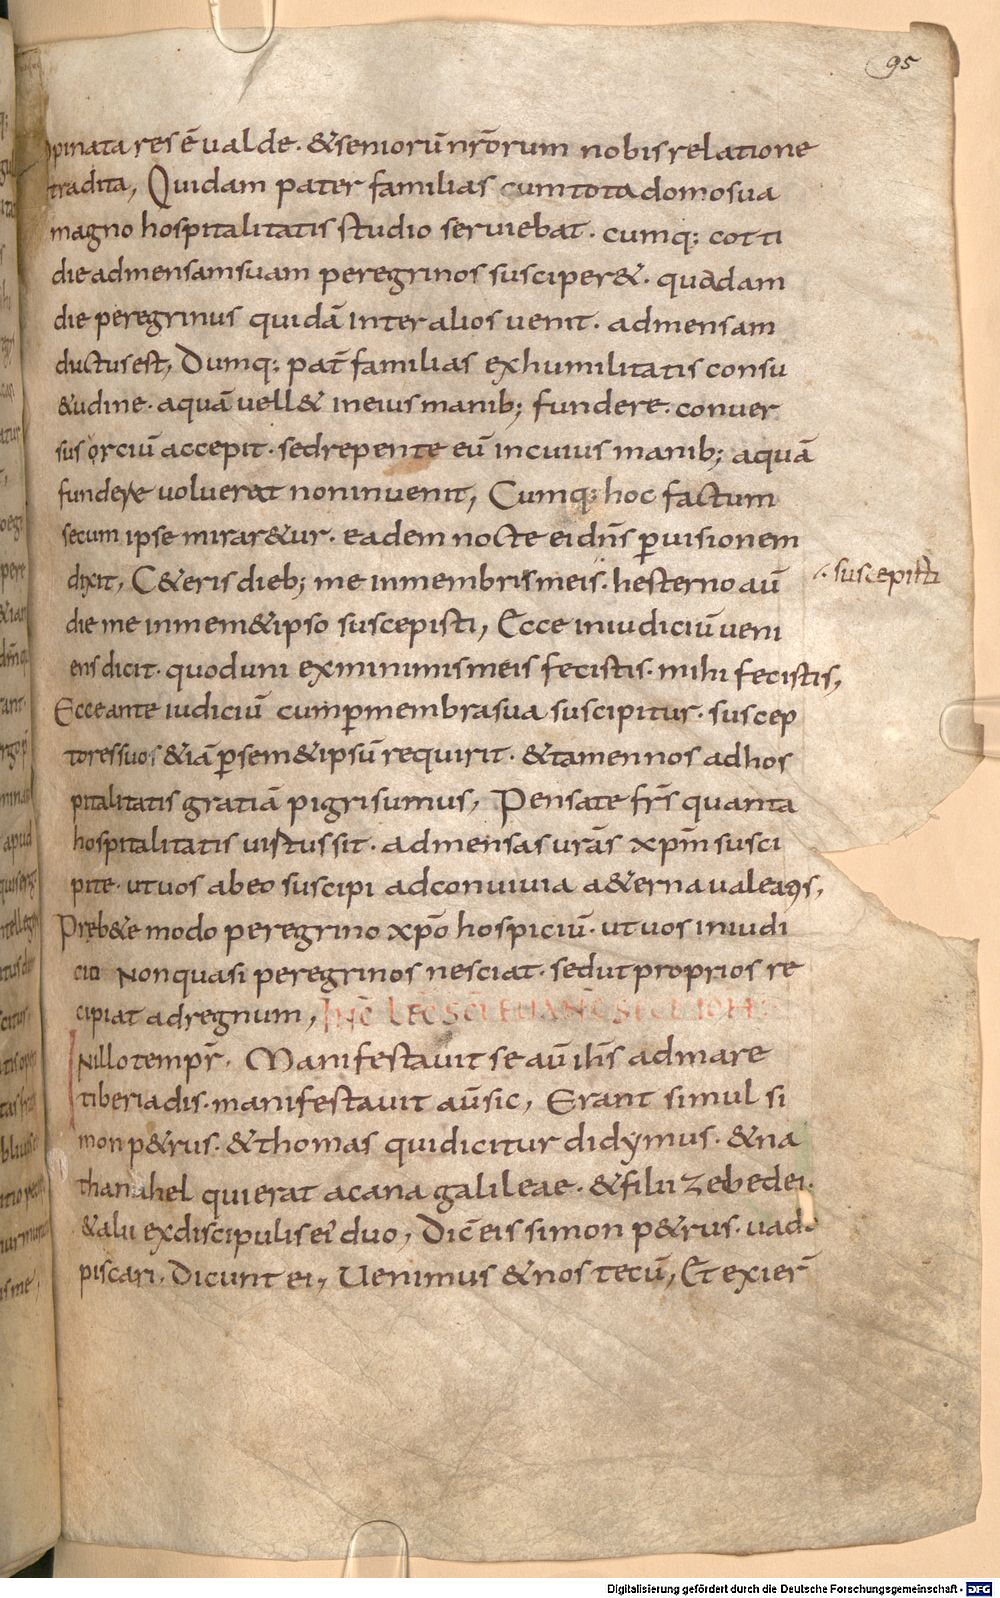 95
pinata res ē ualde. & seniorū nr̄orum nobis relatione
tradita, Quidam pater familias cum tota domo sua
magno hospitalitatis studio seruiebat. cumq; cotti
die ad mensam suam peregrinos susciper&. quadam
die peregrinus quidā inter alios uenit. ad mensam
ductus est, Dumq; pat̄ familias ex humilitatis consu
&udine. aquā uell& in eius manib; fundere. conuer
sus orciū accepit. sed repente eū in cuius manib; aquā
fundere uoluerat non inuenit, Cumq; hoc factum
secum ipse mirar&ur. eadem nocte ei dn̄s ꝑ uisionem
dixit, C&eris dieb; me in membris meis. hesterno aū
∴ suscepisti
die me in mem&ipso suscepisti, Ecce in iudiciū ueni
ens dicit. quod uni ex minimis meis fecistis. mihi fecistis,
Ecce ante iudiciū cum ꝑ membra sua suscipitur. suscep
tores suos & iā ꝑ sem&ipsū requirit. & tamen nos ad hos
pitalitatis gratiā pigri sumus, Pensate fr̄s quanta
hospitalitatis uistus sit. ad mensas urās xp̄m susci
pite. ut uos ab eo suscipi ad conuiuia a&erna ualeatis,
Preb&e modo peregrino xp̄o hospiciū. ut uos in iudi
cii non quasi peregrinos nesciat. sed ut proprios re
cipiat ad regnum, INC̄ LEC̄ SCI EUANC̄ SEC̄D IOH̄
IN illo tempr̄. Manifestauit se aū ih̄s ad mare
tiberiadis. manifestauit aūsic, Erant simul si
mon p&rus. & thomas qui dicitur didymus. & na
thanahel qui erat a cana galileae. & filii zebedei.
& alii ex discipulis ei' duo, Dic̄ eis simon p&rus. uado
piscari. Dicunt ei, Uenimus & nos tecū, Et exier̄
Digitalisierung gefördert durch die Deutsche Forschungsgemeinschaft - DFG